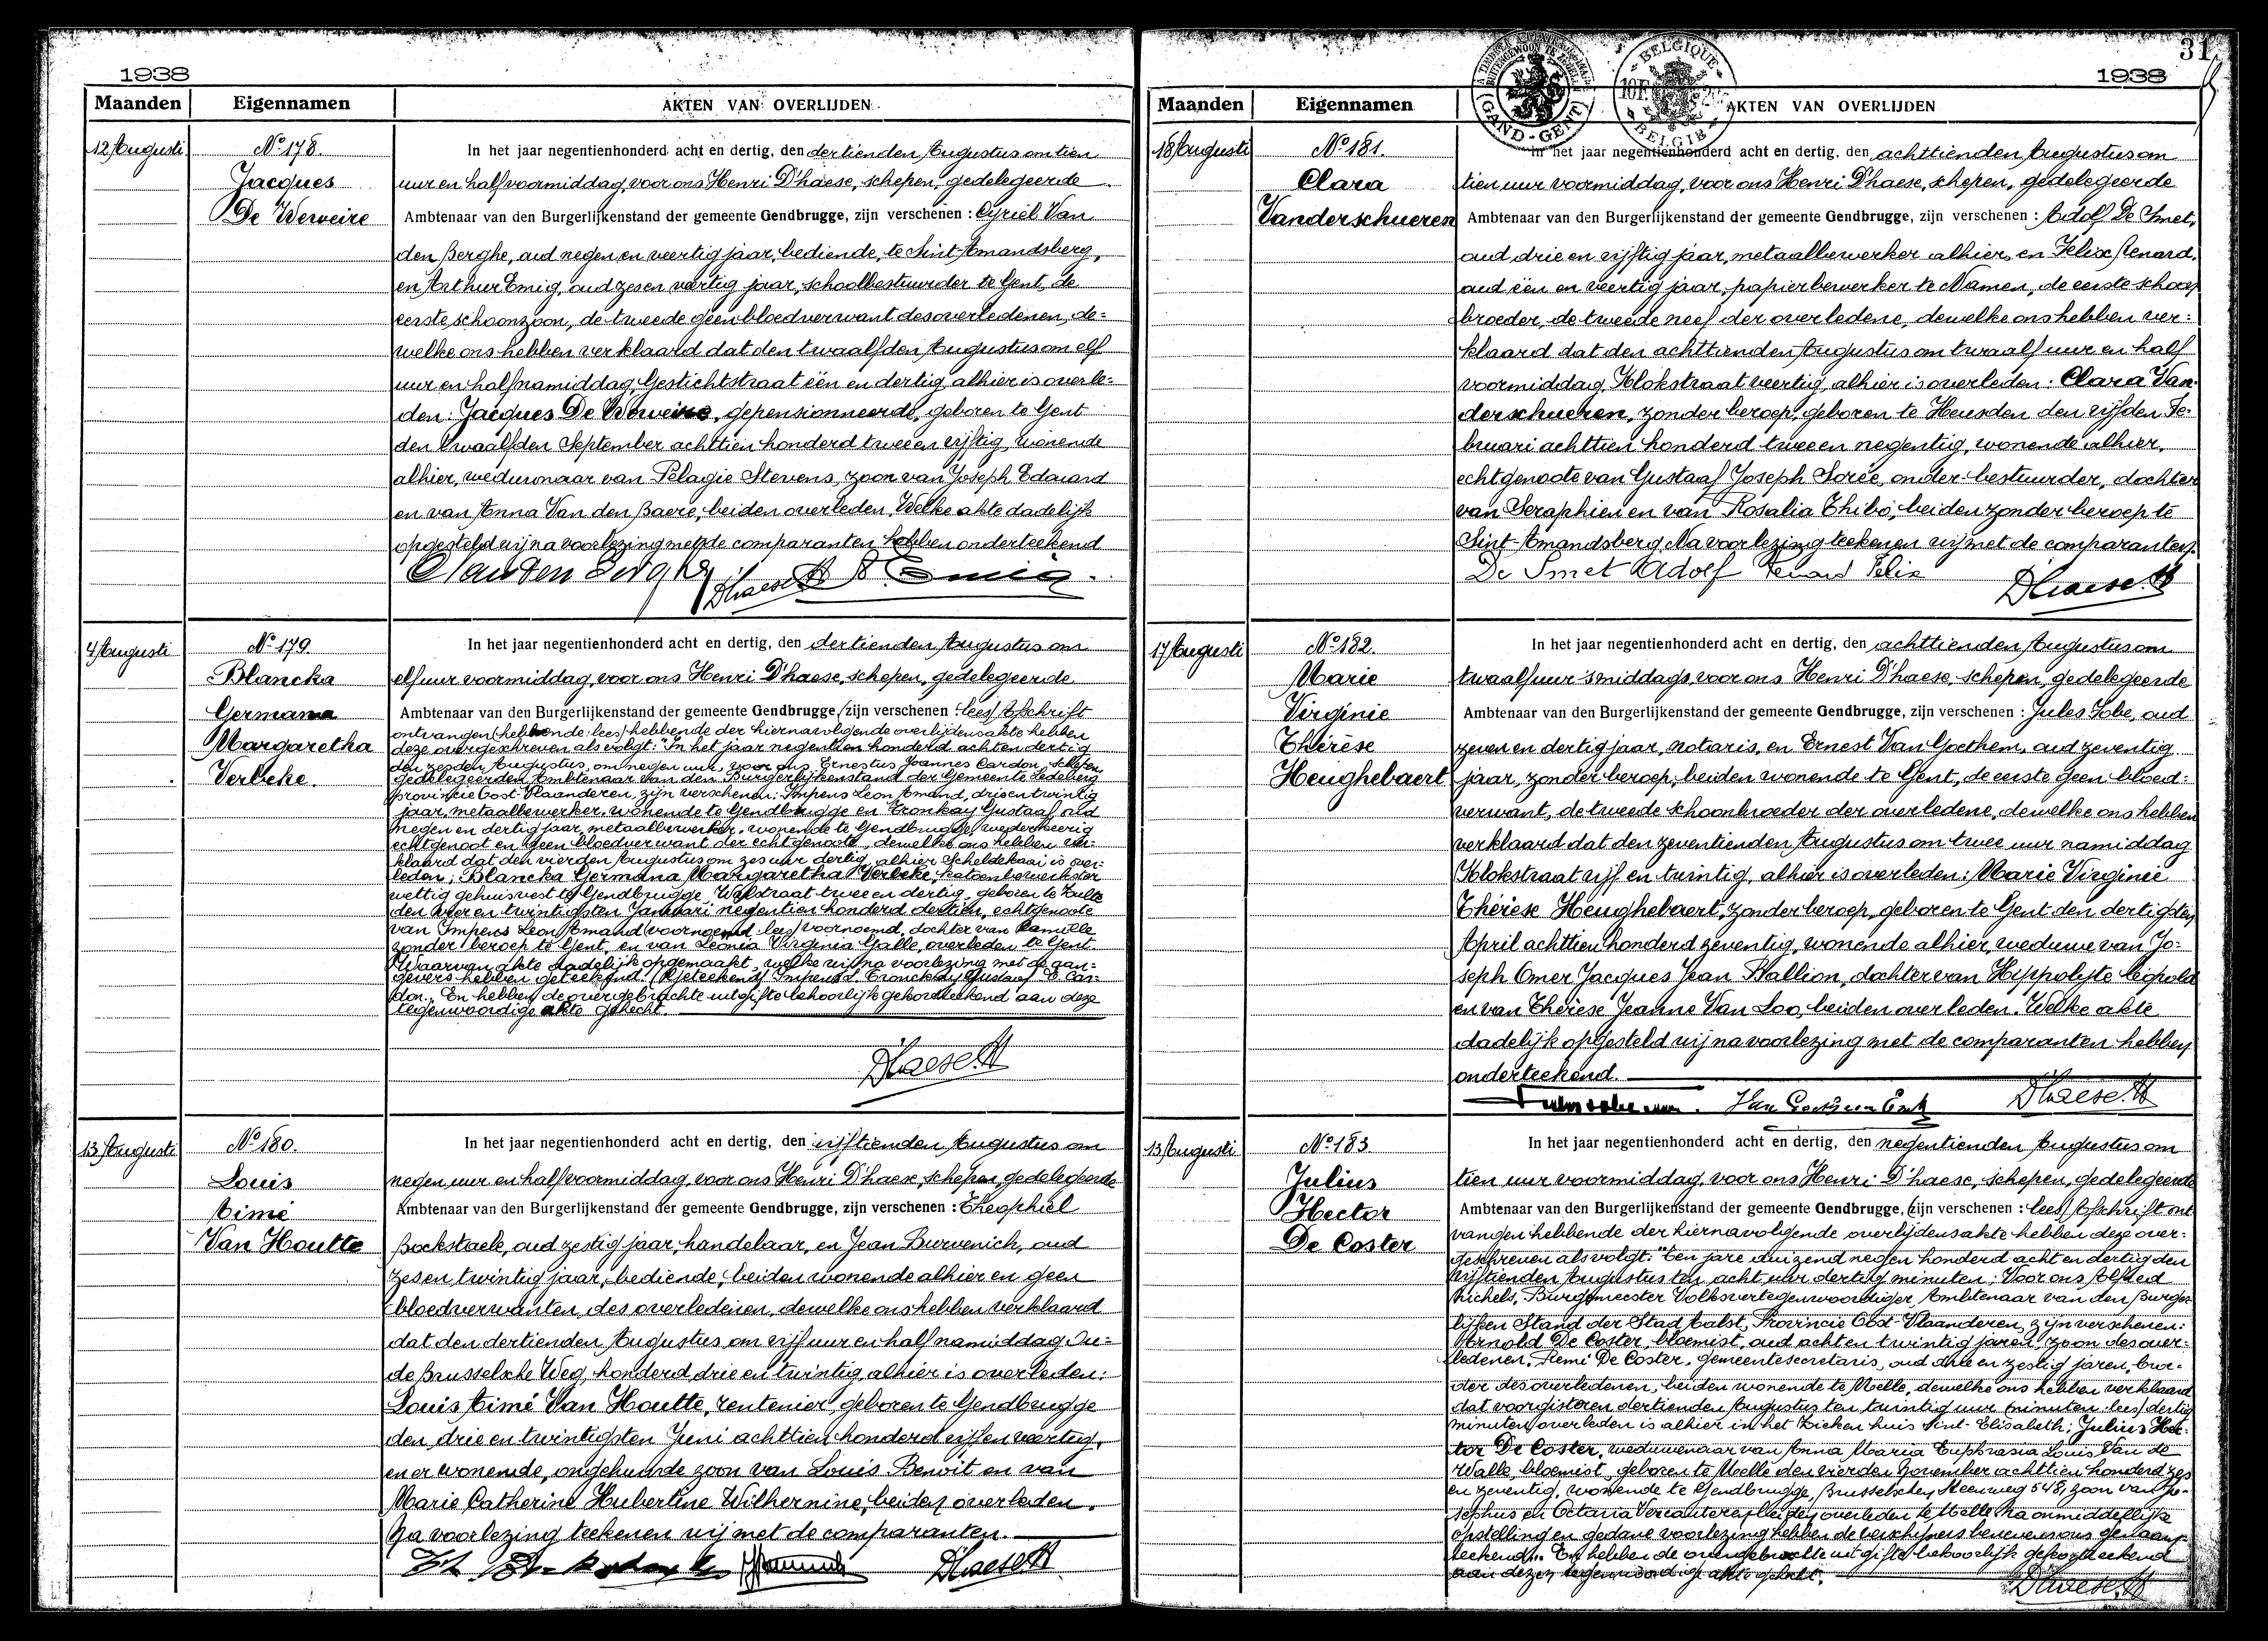 1938
Maanden Eigennamen AKTEN VAN OVERLIJDEN
12 Augusti No 178.
Jacques
De Weweire
In het jaar negentienhonderd acht en dertig, den dertienden Augustus om tien
uur en half voormiddag, voor ons Henri D'haese, schepen, gedelegeerde
Ambtenaar van den Burgerlijkenstand der gemeente Gendbrugge, zijn verschenen : Cyriel Van
den Berghe, oud negen en veertig jaar, bediende, te Sint-Amandsberg,
en Arthur Emig, oud zes en veertig jaar, schoolbestuurder te Gent, de
eerste schoonzoon, de tweede geen bloedverwant des overledenen, de=
welke ons hebben verklaard dat den twaalfden Augustus om elf
uur en half namiddag, Gestichtstraat één en dertig, alhier is overle=
den: Jacques De Weweire, gepensionneerde, geboren te Gent
den twaalfden September achttien honderd twee en vijftig, wonende
alhier, weduwnaar van Pelagie Stevens, zoon van Joseph Edouard
en van Anna Van den Baere, beiden overleden. Welke akte dadelijk
opgesteld wij na voorlezing met de comparanten hebben onderteekend
D'haese H Emig
4 Augusti No 179.
Blancka
Germana
Margaretha
Verbeke.
In het jaar negentienhonderd acht en dertig, den dertienden Augustus om
elf uur voormiddag, voor ons Henri D'haese, schepen, gedelegeerde
Ambtenaar van den Burgerlijkenstand der gemeente Gendbrugge, (zijn verschenen : lees) Afschrift
ontvangen (hebbende: lees) hebbende der hiernavolgende overlijdensakte hebben
deze overgeschreven als volgt: "In het jaar negentien honderd acht en dertig
den zesden Augustus, om negen uur, voor ons Ernestus Joannes Cardon, schepen,
gedelegeerden Ambtenaar van den Burgerlijkenstand der Gemeente Ledeberg
provincie Oost-Vlaanderen, zijn verschenen: Impens Leon Amand, drie en twintig
jaar, metaalbewerker, wonende te Gendbrugge en Tronkay Gustaaf, oud
negen en dertig jaar, metaalbewerker, wonende te Gendbrugge, wederkeerig
echtgenoot en geen bloedverwant der echtgenoote, dewelke ons hebben ver=
klaard dat den vierden Augustus om zes uur dertig, alhier Scheldekaai is over=
leden: Blancka Germana Margaretha Verbeke, katoenbewerkster
wettig gehuisvest te Gendbrugge, Walstraat twee en dertig, geboren te Zulte
den vier en twintigsten Januari negentien honderd dertien, echtgenoote
van Impens Leon Amand (voornoemd: lees) voornoemd, dochter van Kamille
zonder beroep te Gent, en van Leonia Virginia Galle, overleden te Gent.
Waarvan akte dadelijk opgemaakt, welke wij na voorlezing met de aan=
gevers hebben geteekend. (Geteekend) Impens L. Tronckay Gustaaf E. Car=
don. En hebben de overgebrachte uitgifte behoorlijk gekortteekend aan deze
tegenwoordige akte gehecht.
D'haese H
13 Augusti No 180.
Louis
Aimé
Van Houtte
In het jaar negentienhonderd acht en dertig, den vijftienden Augustus om
negen uur en half voormiddag, voor ons Henri D'haese, schepen, gedelegeerde
Ambtenaar van den Burgerlijkenstand der gemeente Gendbrugge, zijn verschenen : Theophiel
Bockstaele, oud zestig jaar, handelaar, en Jean Burvenich, oud
zes en twintig jaar, bediende, beiden wonende alhier en geen
bloedverwanten des overledenen, dewelke ons hebben verklaard
dat den dertienden Augustus om vijf uur en half namiddag Ou=
de Brusselsche Weg, honderd drie en twintig, alhier is overleden:
Louis Aimé Van Houtte, rentenier, geboren te Gendbrugge
den drie en twintigsten Juni achttien honderd vijf en veertig,
en er wonende, ongehuwde zoon van Louis Benoît en van
Marie Catherine Hubertine Wilhernine, beiden overleden.
Na voorlezing teekenen wij met de comparanten.
D'haese H
31
1938
GAND-GENT
BELGIQUE
BELGIE
Maanden Eigennamen AKTEN VAN OVERLIJDEN
18 Augusti No 181.
Clara
Vanderschueren
In het jaar negentienhonderd acht en dertig, den achttienden Augustus om
tien uur voormiddag, voor ons Henri D'haese, schepen, gedelegeerde
Ambtenaar van den Burgerlijkenstand der gemeente Gendbrugge, zijn verschenen : Adolf De Smet,
oud drie en vijftig jaar, metaalbewerker alhier, en Felix Renard,
oud één en veertig jaar, papierbewerker te Namen, de eerste schoon
broeder, de tweede neef der overledene, dewelke ons hebben ver=
klaard dat den achttienden Augustus om twaalf uur en half
voormiddag, Klokstraat veertig, alhier is overleden: Clara Van=
derschueren, zonder beroep, geboren te Heusden den vijfden Fe=
bruari achttien honderd twee en negentig, wonende alhier,
echtgenoote van Gustaaf Joseph Sorée, onder-bestuurder, dochter
van Seraphien en van Rosalia Thibo, beiden zonder beroep te
Sint-Amandsberg. Na voorlezing teekenen wij met de comparanten.
De Smet Adolf Renard Felix D'haese H
17 Augusti No 182.
Marie
Virginie
Thérèse
Heughebaert
In het jaar negentienhonderd acht en dertig, den achttienden Augustus om
twaalf uur 's middags, voor ons Henri D'haese, schepen, gedelegeerde
Ambtenaar van den Burgerlijkenstand der gemeente Gendbrugge, zijn verschenen : Jules Sobe, oud
zeven en dertig jaar, notaris, en Ernest Van Goethem, oud zeventig
jaar, zonder beroep, beiden wonende te Gent, de eerste geen bloed=
verwant, de tweede schoonbroeder der overledene, dewelke ons hebben
verklaard dat den zeventienden Augustus om twee uur namiddag
Klokstraat vijf en twintig, alhier is overleden: Marie Virginie
Thérèse Heughebaert, zonder beroep, geboren te Gent den dertigsten
April achttien honderd zeventig, wonende alhier, weduwe van Jo=
seph Omer Jacques Jean Hallion, dochter van Hippolyte Leopold
en van Thérèse Jeanne Van Loo, beiden overleden. Welke akte
dadelijk opgesteld wij na voorlezing met de comparanten hebben
onderteekend.
Van Goethem Ernest D'haese H
13 Augusti No 183.
Julius
Hector
De Coster
In het jaar negentienhonderd acht en dertig, den negentienden Augustus om
tien uur voormiddag, voor ons Henri D'haese, schepen, gedelegeerde
Ambtenaar van den Burgerlijkenstand der gemeente Gendbrugge, (zijn verschenen : lees) Afschrift ont
vangen hebbende der hiernavolgende overlijdensakte hebben deze over=
geschreven als volgt: "Ten jare duizend negen honderd acht en dertig den
vijftienden Augustus ten acht uur dertig minuten; Voor ons Alfred
Nichels, Burgemeester Volksvertegenwoordiger, Ambtenaar van den Burger
lijken Stand der Stad Aalst, Provincie Oost-Vlaanderen, zijn verschenen:
Arnold De Coster, bloemist, oud acht en twintig jaren, zoon des over=
ledenen, Remi De Coster, gemeentesecretaris, oud drie en zestig jaren, broe=
der des overledenen, beiden wonende te Melle, dewelke ons hebben verklaard
dat voorgisteren dertienden Augustus ten twintig uur (minuten: lees) dertig
minuten overleden is alhier in het Zieken huis Sint-Elisabeth; Julius Hec=
tor De Coster, weduwenaar van Anna Maria Euphrasia Louis Van de
Walle, bloemist, geboren te Melle den vierden November achttien honderd zes
en zeventig, wonende te Gendbrugge, Brusselschen Steenweg 548, zoon van Jo=
sephus en Octavia Vercauteren, beiden overleden te Melle. Na onmiddellijke
opstelling en gedane voorlezing hebben de verschijners benevens ons
teekend. En hebben de overgebrachte uitgifte behoorlijk gekortteekend
aan dezen tegenwoordige akte gehecht.
D'haese H